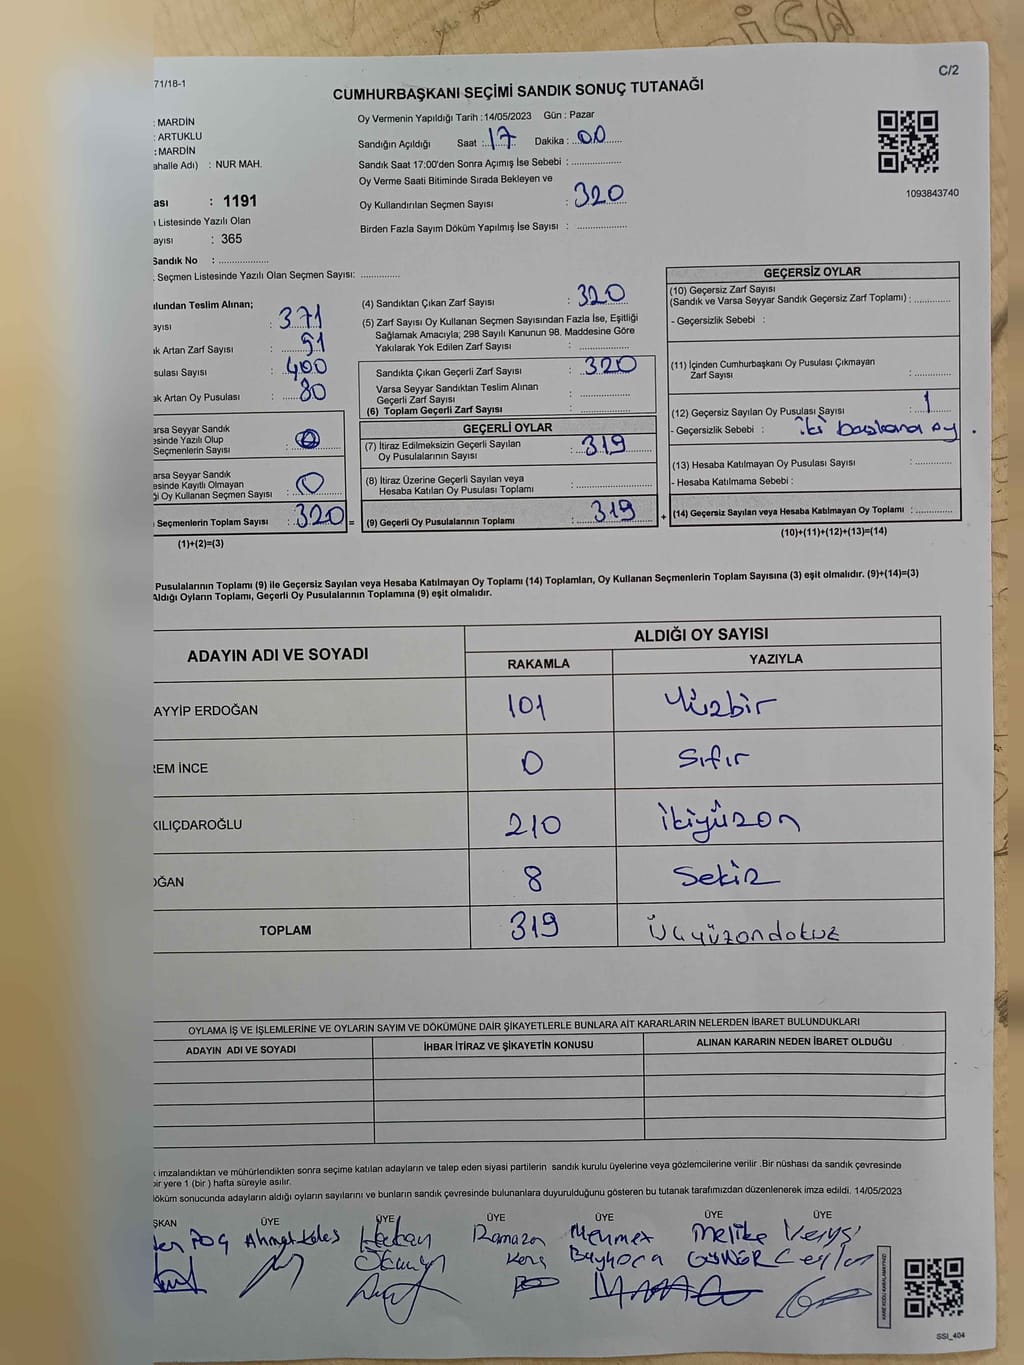 C/2
71/18-1
CUMHURBAŞKANI SEÇİMİ SANDIK SONUÇ TUTANAĞI
: MARDİN
: ARTUKLU
: MARDİN
ahalle Adı) : NUR MAH.
ası : 1191
ı Listesinde Yazılı Olan
ayısı : 365
Sandık No : ....................
: Seçmen Listesinde Yazılı Olan Seçmen Sayısı: ...............
Oy Vermenin Yapıldığı Tarih :14/05/2023 Gün : Pazar
Sandığın Açıldığı Saat : 17 Dakika : 00
Sandık Saat 17:00'den Sonra Açımış İse Sebebi : ....................
Oy Verme Saati Bitiminde Sırada Bekleyen ve
Oy Kullandırılan Seçmen Sayısı : 320
Birden Fazla Sayım Döküm Yapılmış İse Sayısı : ....................
1093843740
ulundan Teslim Alınan;
ayısı : 371
ık Artan Zarf Sayısı : 51
sulası Sayısı : 400
ak Artan Oy Pusulası : 80
arsa Seyyar Sandık
esinde Yazılı Olup
Seçmenlerin Sayısı : 0
arsa Seyyar Sandık
esinde Kayıtlı Olmayan
ği Oy Kullanan Seçmen Sayısı : 0
Seçmenlerin Toplam Sayısı : 320 =
(1)+(2)=(3)
(4) Sandıktan Çıkan Zarf Sayısı : 320
(5) Zarf Sayısı Oy Kullanan Seçmen Sayısından Fazla İse, Eşitliği
Sağlamak Amacıyla; 298 Sayılı Kanunun 98. Maddesine Göre
Yakılarak Yok Edilen Zarf Sayısı : ....................
Sandıkta Çıkan Geçerli Zarf Sayısı : 320
Varsa Seyyar Sandıktan Teslim Alınan
Geçerli Zarf Sayısı : ....................
(6) Toplam Geçerli Zarf Sayısı : ....................
GEÇERLİ OYLAR
(7) İtiraz Edilmeksizin Geçerli Sayılan
Oy Pusulalarının Sayısı : 319
(8) İtiraz Üzerine Geçerli Sayılan veya
Hesaba Katılan Oy Pusulası Toplamı : ....................
(9) Geçerli Oy Pusulalarının Toplamı : 319 +
GEÇERSİZ OYLAR
(10) Geçersiz Zarf Sayısı
(Sandık ve Varsa Seyyar Sandık Geçersiz Zarf Toplamı) : ...............
- Geçersizlik Sebebi :
(11) İçinden Cumhurbaşkanı Oy Pusulası Çıkmayan
Zarf Sayısı : ...............
(12) Geçersiz Sayılan Oy Pusulası Sayısı : 1
- Geçersizlik Sebebi : iki başkana oy .
(13) Hesaba Katılmayan Oy Pusulası Sayısı : ...............
- Hesaba Katılmama Sebebi :
(14) Geçersiz Sayılan veya Hesaba Katılmayan Oy Toplamı : ...............
(10)+(11)+(12)+(13)=(14)
Pusulalarının Toplamı (9) ile Geçersiz Sayılan veya Hesaba Katılmayan Oy Toplamı (14) Toplamları, Oy Kullanan Seçmenlerin Toplam Sayısına (3) eşit olmalıdır. (9)+(14)=(3)
Aldığı Oyların Toplamı, Geçerli Oy Pusulalarının Toplamına (9) eşit olmalıdır.
ADAYIN ADI VE SOYADI
ALDIĞI OY SAYISI
RAKAMLA YAZIYLA
AYYİP ERDOĞAN 101 Yüzbir
REM İNCE 0 Sıfır
KILIÇDAROĞLU 210 ikiyüzon
OĞAN 8 Sekiz
TOPLAM 319 Üçyüzondokuz
OYLAMA İŞ VE İŞLEMLERİNE VE OYLARIN SAYIM VE DÖKÜMÜNE DAİR ŞİKAYETLERLE BUNLARA AİT KARARLARIN NELERDEN İBARET BULUNDUKLARI
ADAYIN ADI VE SOYADI İHBAR İTİRAZ VE ŞİKAYETİN KONUSU ALINAN KARARIN NEDEN İBARET OLDUĞU
k imzalandıktan ve mühürlendikten sonra seçime katılan adayların ve talep eden siyasi partilerin sandık kurulu üyelerine veya gözlemcilerine verilir .Bir nüshası da sandık çevresinde
bir yere 1 (bir ) hafta süreyle asılır.
döküm sonucunda adayların aldığı oyların sayılarını ve bunların sandık çevresinde bulunanlara duyurulduğunu gösteren bu tutanak tarafımızdan düzenlenerek imza edildi. 14/05/2023
ŞKAN ÜYE ÜYE ÜYE ÜYE ÜYE ÜYE
Ahmet Keleş Hakan Ramazan Mehmet Melike Veysi
Bayhoca GÜNGÖR Ceylan
SSI_404